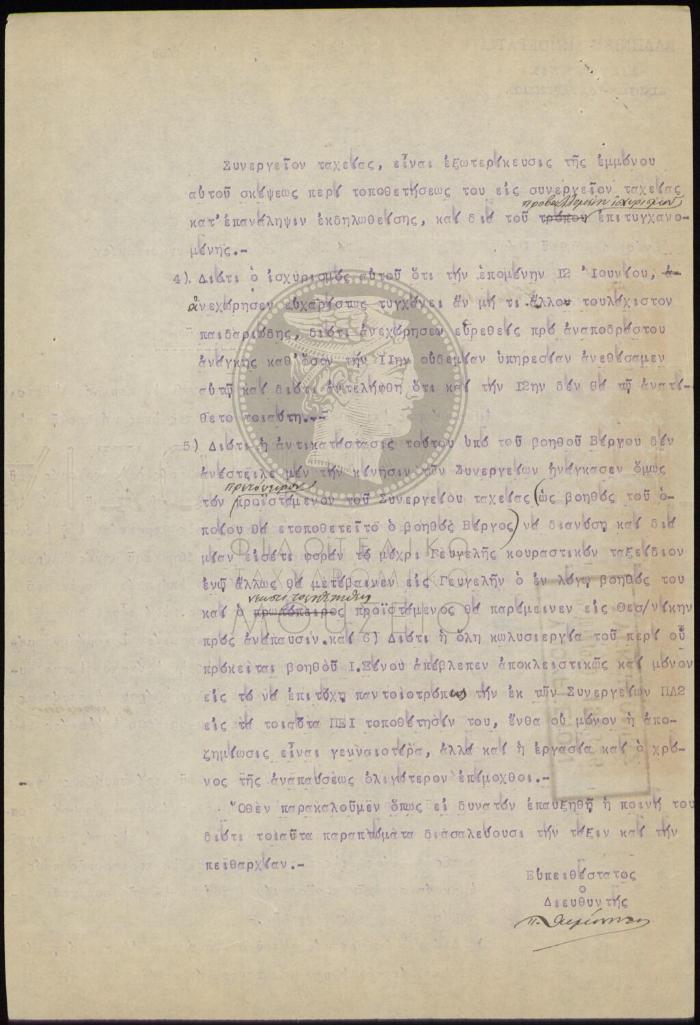 Συνεργεῖον ταχείας, εἶναι ἐξωτερίκευσις τῆς ἐμμόνου
αὐτοῦ σκέψεως περί τοποθετήσεως του εἰς συνεργεῖον ταχείας
κατ'ἐπανάληψιν ἐκδηλωθείσης, καί διά τοῦ τρόπου ἐπιτυγχανο-
μένης.-
4). Διότι ὁ ἰσχυρισμός αὐτοῦ ὅτι τήν ἑπομένην 12 'Ιουνίου,
ἀνεχώρησεν εὐχαρίστως τυγχάνει ἄν μή τι ἄλλον τουλάχιστον
παιδαριώδης, διότι ἀνεχώρησεν εὑρεθείς πρό ἀναποδράστου
ἀνάγκης καθ'ὅσον τήν 11ην οὐδεμίαν ὑπηρεσίαν ἀνεθέσαμεν
αὐτῷ καί διότι ἀντελήφθη ὅτι καί τήν 12ην δέν θά τῷ ἀνατί-
θετο τοιαύτη.-
5) Διότι ἡ ἀντικατάστασις τούτου ὑπό τοῦ βοηθοῦ Βέργου δέν
ἀνέστειλε μέν τήν κίνησιν τῶν Συνεργείων ἠνάγκασεν ὅμως
τόν προϊστάμενον τοῦ Συνεργείου ταχείας (ὡς βοηθός τοῦ ὁ-
ποίου θά ἐτοποθετεῖτο ὁ βοηθός Βέργος) νά διανύσῃ καί διά
μίαν εἰσέτι φοράν τό μέχρι Γευγελῆς κουραστικόν ταξείδιον
ἐνῷ ἄλλως θά μετέβαινεν εἰς Γευγελῆν ὁ ἐν λόγῳ βοηθός του
καί ὁ πρωτόπειρος προϊστάμενος θά παρέμεινεν εἰς Θεσ/νίκην
πρός ἀνάπαυσιν.καί 6) Διότι ἡ ὅλη κωλυσιεργία τοῦ περί οὗ
πρόκειται βοηθοῦ Ι.Ξένου ἀπέβλεπεν ἀποκλειστικῶς καί μόνον
εἰς τό νά ἐπιτύχῃ παντοιοτρόπως τήν ἐκ τῶν Συνεργείων ΠΔ2
εἰς τά τοιαῦτα ΠΕΙ τοποθέτησίν του, ἔνθα οὐ μόνον ἡ ἀπο-
ζημίωσις εἶναι γενναιοτέρα, ἀλλά καί ἡ ἐργασία καί ὁ χρό-
νος τῆς ἀναπαύσεως ὀλιγώτερον ἐπίμοχθοι.-
'Οθέν παρακαλοῦμεν ὅπως εἰ δυνατόν ἐπαυξηθῇ ἡ ποινή του
διότι τοιαῦτα παραπτώματα διασαλεύουσι τήν τάξιν καί τήν
πειθαρχίαν.-
Εὐπειθέστατος
ο
Διευθυντής
ΦΙΛΟΤΕΛΙΚΟ
ΤΑΧΥΔΡΟΜΙΚΟ
ΜΟΥΣΕΙΟ